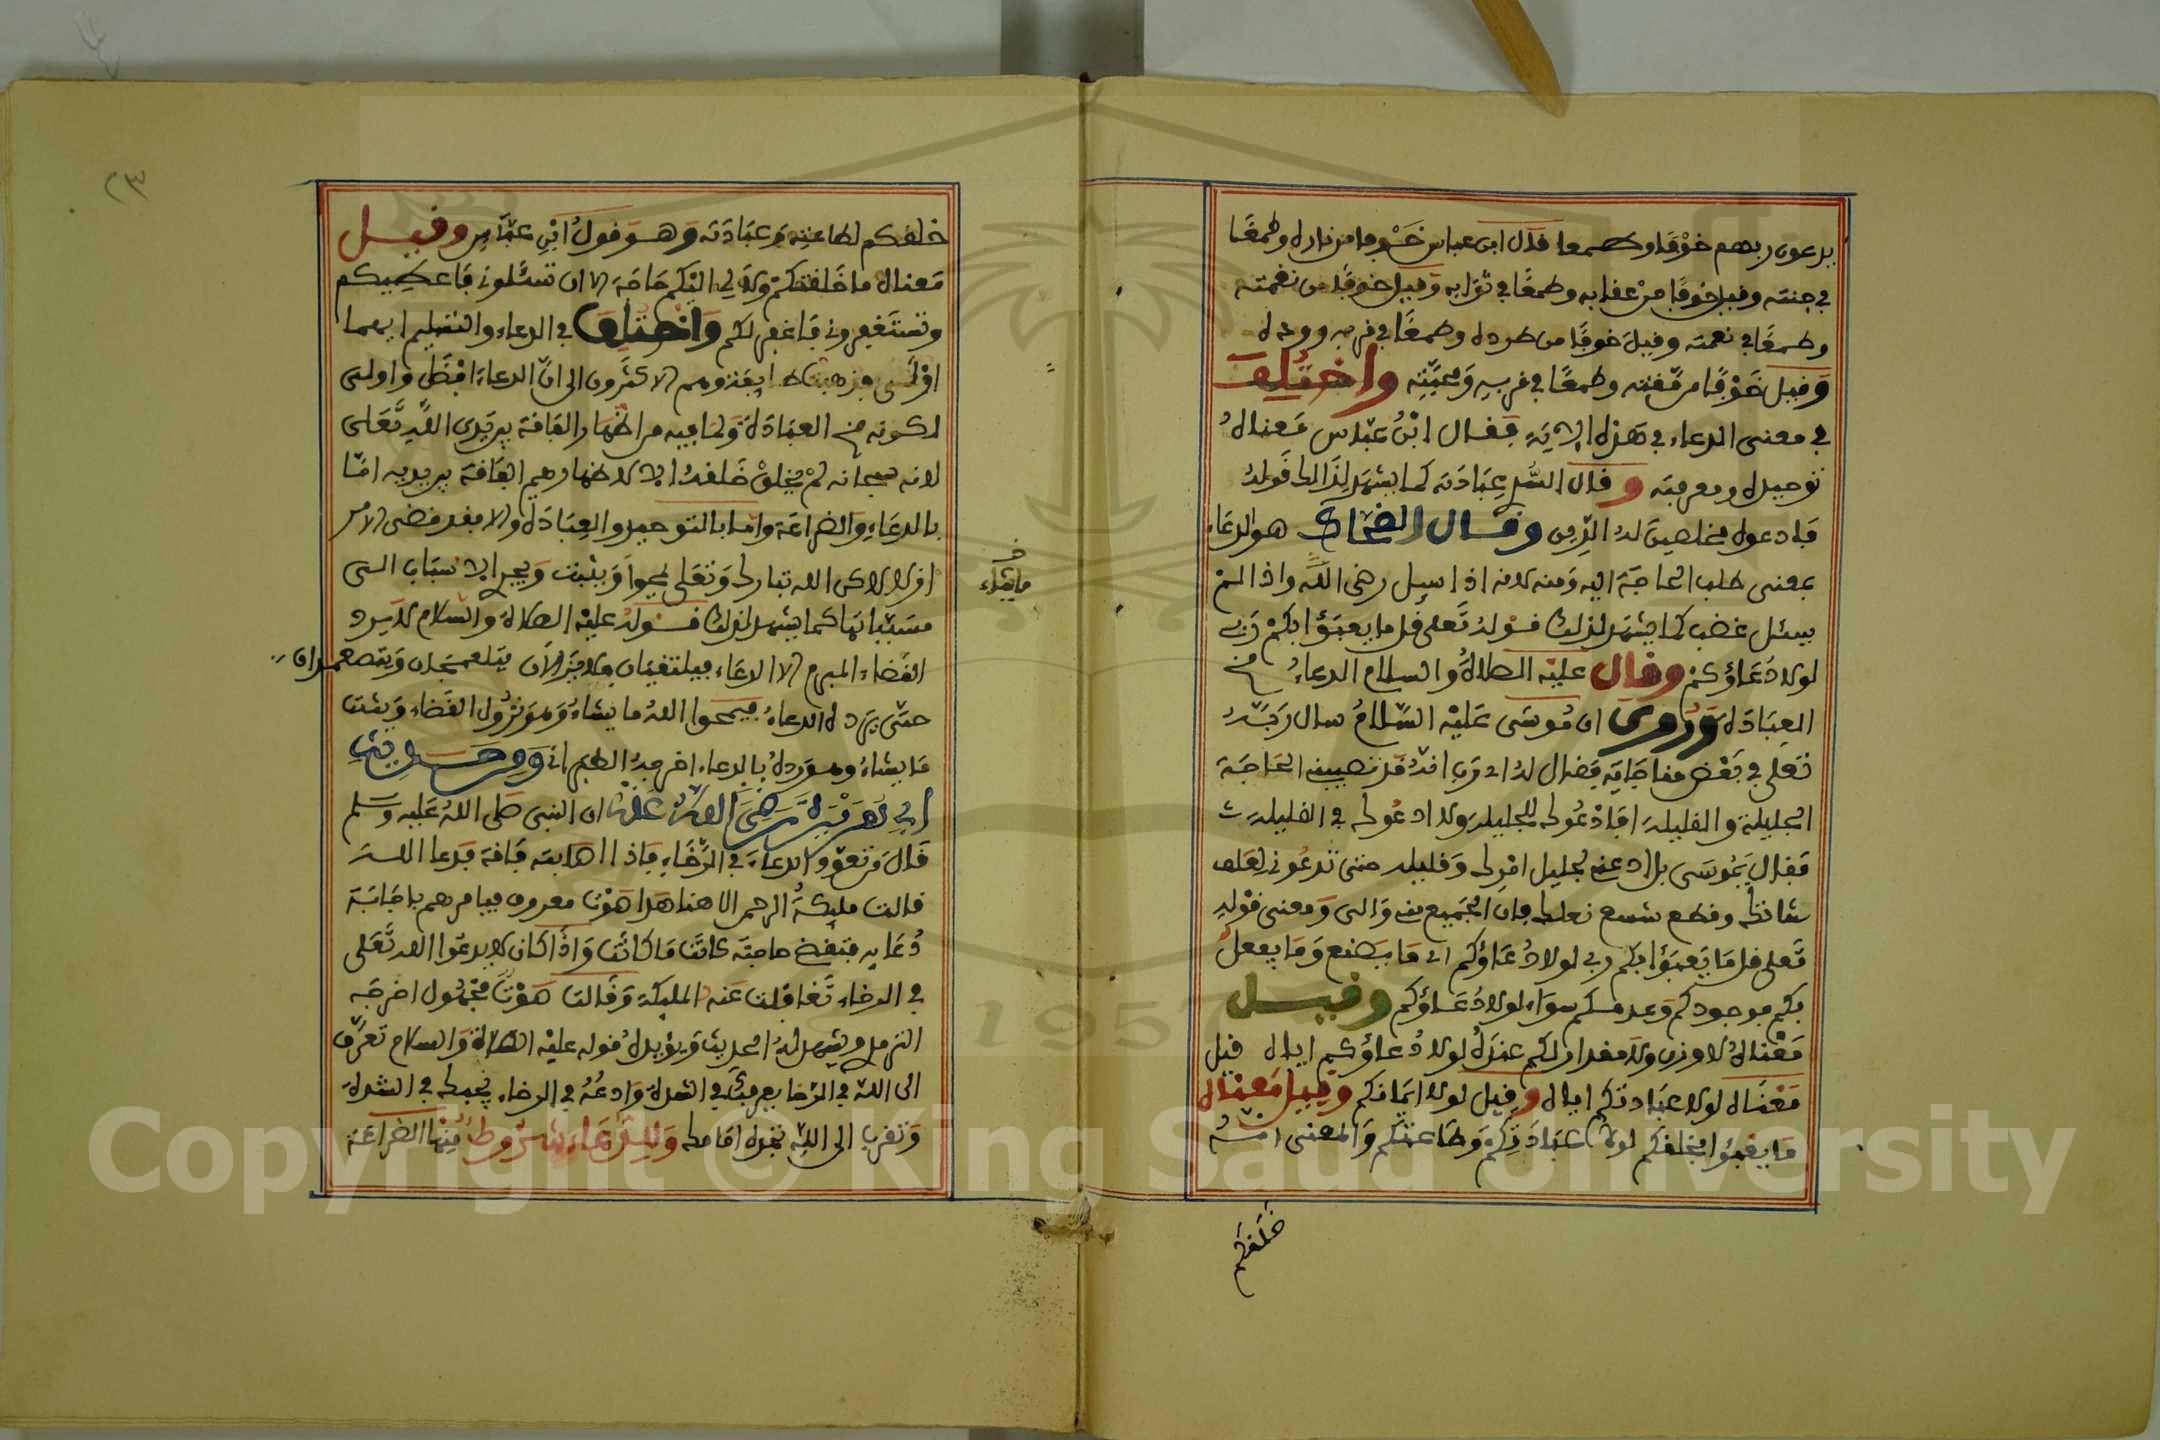 يدعون ربهم خوفا وطمعا قال ابن عباس خوفا من ناره وطمعا
في جنته وقيل خوفا من عقابه وطمعا في ثوابه وقيل خوفا من نقمته
وطمعا في نعمته وقيل خوفا من طرده وطمعا في قربه ووده
وقيل خوفا من وطمعا في قربه ومحبته واختلف
في معنى الدعاء في هذه الاية فقال ابن عباس معناه
توحيده ومعرفته وقال عبادته كما يشهد لذالك قوله
فادعوه مخلصين له الدين وقال الضحاك هو الدعاء
بمعنى طلب الحاجة اليه ومنه لانه اذا سيل رضي الله واذا لم
يسئل غضب كما يشهد لذلك قوله تعلى قل ما يعبؤا بكم ربي
لولا دعاؤكم وقال عليه الصلاة والسلام الدعاء مخ
العبادة وروي ان موسى عليه السلام سال ربه
تعلى في بعض مناجاته فقال له اي رب انه قد تصيبني الحاجة
الجليلة والقليلة افادعوك للجليلة ولا ادعوك في القليلة
فقال يموسى بل ادعني لجليل امرك وقليله حتى تدعوني لعلف
شاتك وقطع شسع نعلك فان الجميع مني والي ومعنى قوله
تعلى قل ما يعبؤا بكم ربي لولا دعاؤكم اي ما يصنع وما يفعل
بكم موجودكم وعدمكم سواء لولا دعاؤكم وقيل
معناه لا وزن ولا مقدار لكم عنده لولا دعاؤكم اياه قيل
معناه لولا عبادتكم اياه وقيل لولا ايمانكم وقيل معناه
ما يعبؤا بخلقكم لولا عبادتكم وطاعتكم والمعنى انه
خلقكم
٢٣
خلقكم لطاعته وعبادته وهو قول ابن عباس وقيل
معناه ما خلقتكم ولي اليكم حاجة الا ان تسئلوني فاعطيكم
وتستغفروني فاغفر لكم واختلف في الدعاء والتسليم ايهما
اولى فذهبت طايفة وهم الاكثرون الى ان الدعاء افضل واولى
لكونه مخ العبادة ولما فيه من اظهار الفاقة بين يدي الله تعلى
لانه سبحانه لم يخلق خلقه الا لاظهارهم الفاقة بين يديه اما
بالدعاء والضراعة واما بالتوحيد والعبادة والا فقد قضى الامر
ازلا لاكن الله تبارك وتعلى يمحوا ويثبت ويجري الاسباب الى
ما يشاء
مسبباتها كما يشهد لذلك قوله عليه الصلاة والسلام لا يرد
القضاء المبرم الا الدعاء فيلتقيان فلا يزالان يتلعجان ويتصعدان
حتى يرده الدعاء فيمحوا الله ما يشاء وهو نزول القضاء ويثبت
ما يشاء وهو رده بالدعاء اخرجه الطبراني ومن حديث
ابي هريرة رضي الله عنه ان النبي صلى الله عليه وسلم
قال من تعود الدعاء في الرخاء فاذا اصابته فاقة فدعا الله
قالت مليكة الرحمن الاهنا هذا صوت معروف فيامرهم باجابة
دعايه فتقضى حاجته كانت ما كانت واذا كان لا يدعوا الله تعلى
في الرخاء تغافلت عنه المليكة وقالت صوت مجهول اخرجه
الترمذي ويشهد لهذا الحديث ويؤيده قوله عليه الصلاة والسلام تعرف
الى الله في الرخا يعرفك في الشدة وادعه في الرخاء يجبك في الشدة
وتقرب الى الله تجده امامك وللدعاء شروط منها الضراعة
Copyright © King Saud University
1957